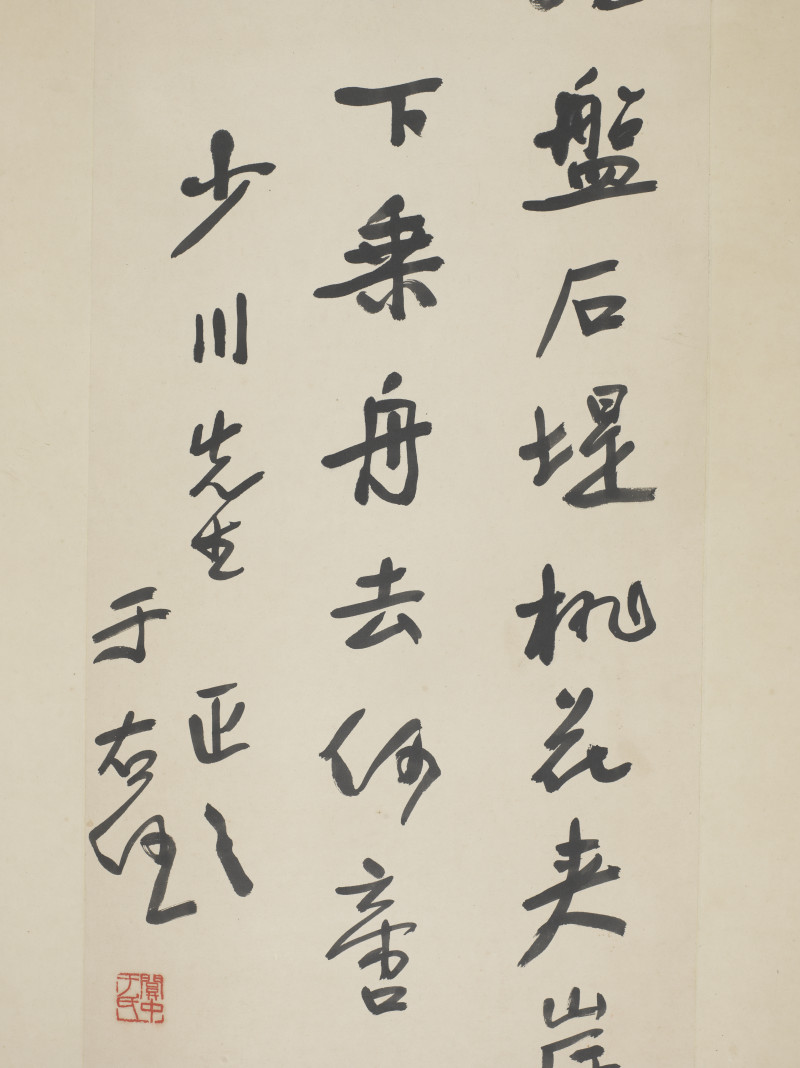 盤石堤桃花夾岸
下乘舟去何啻
少川先生正之
于右任
關中于氏